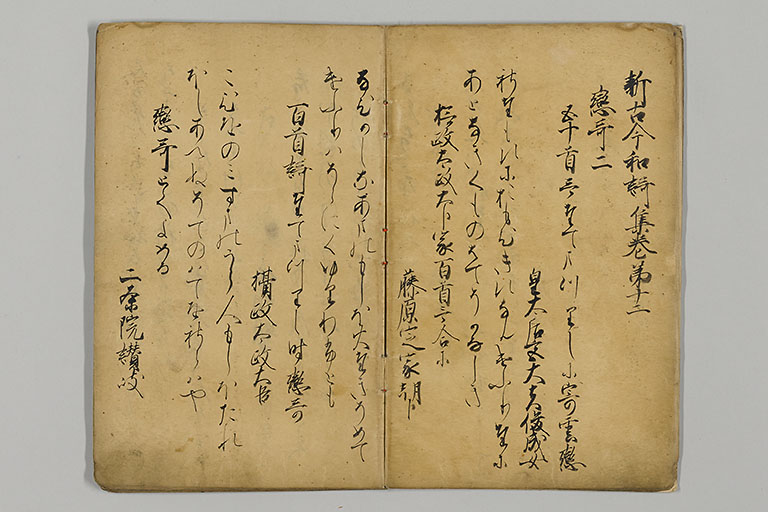 新古今和謌集巻第十二
戀哥二
五十首哥たてまつりしに寄雲戀
皇太后宮大夫俊成女
したもえにおもひきえなんけふりたに
あとなきくものはてそかなしき
摂政太政大臣家百首哥合に
藤原定家朝臣
なひかしなあまのもしほ火たきそめて
けふりはそらにくゆりわふとも
百首謌たてまつりし時戀哥
摂政太政大臣
こひをのみすまのうら人もしほたれ
ほしあへぬそてのはてをしらはや
戀哥とてよめる
二条院讃岐